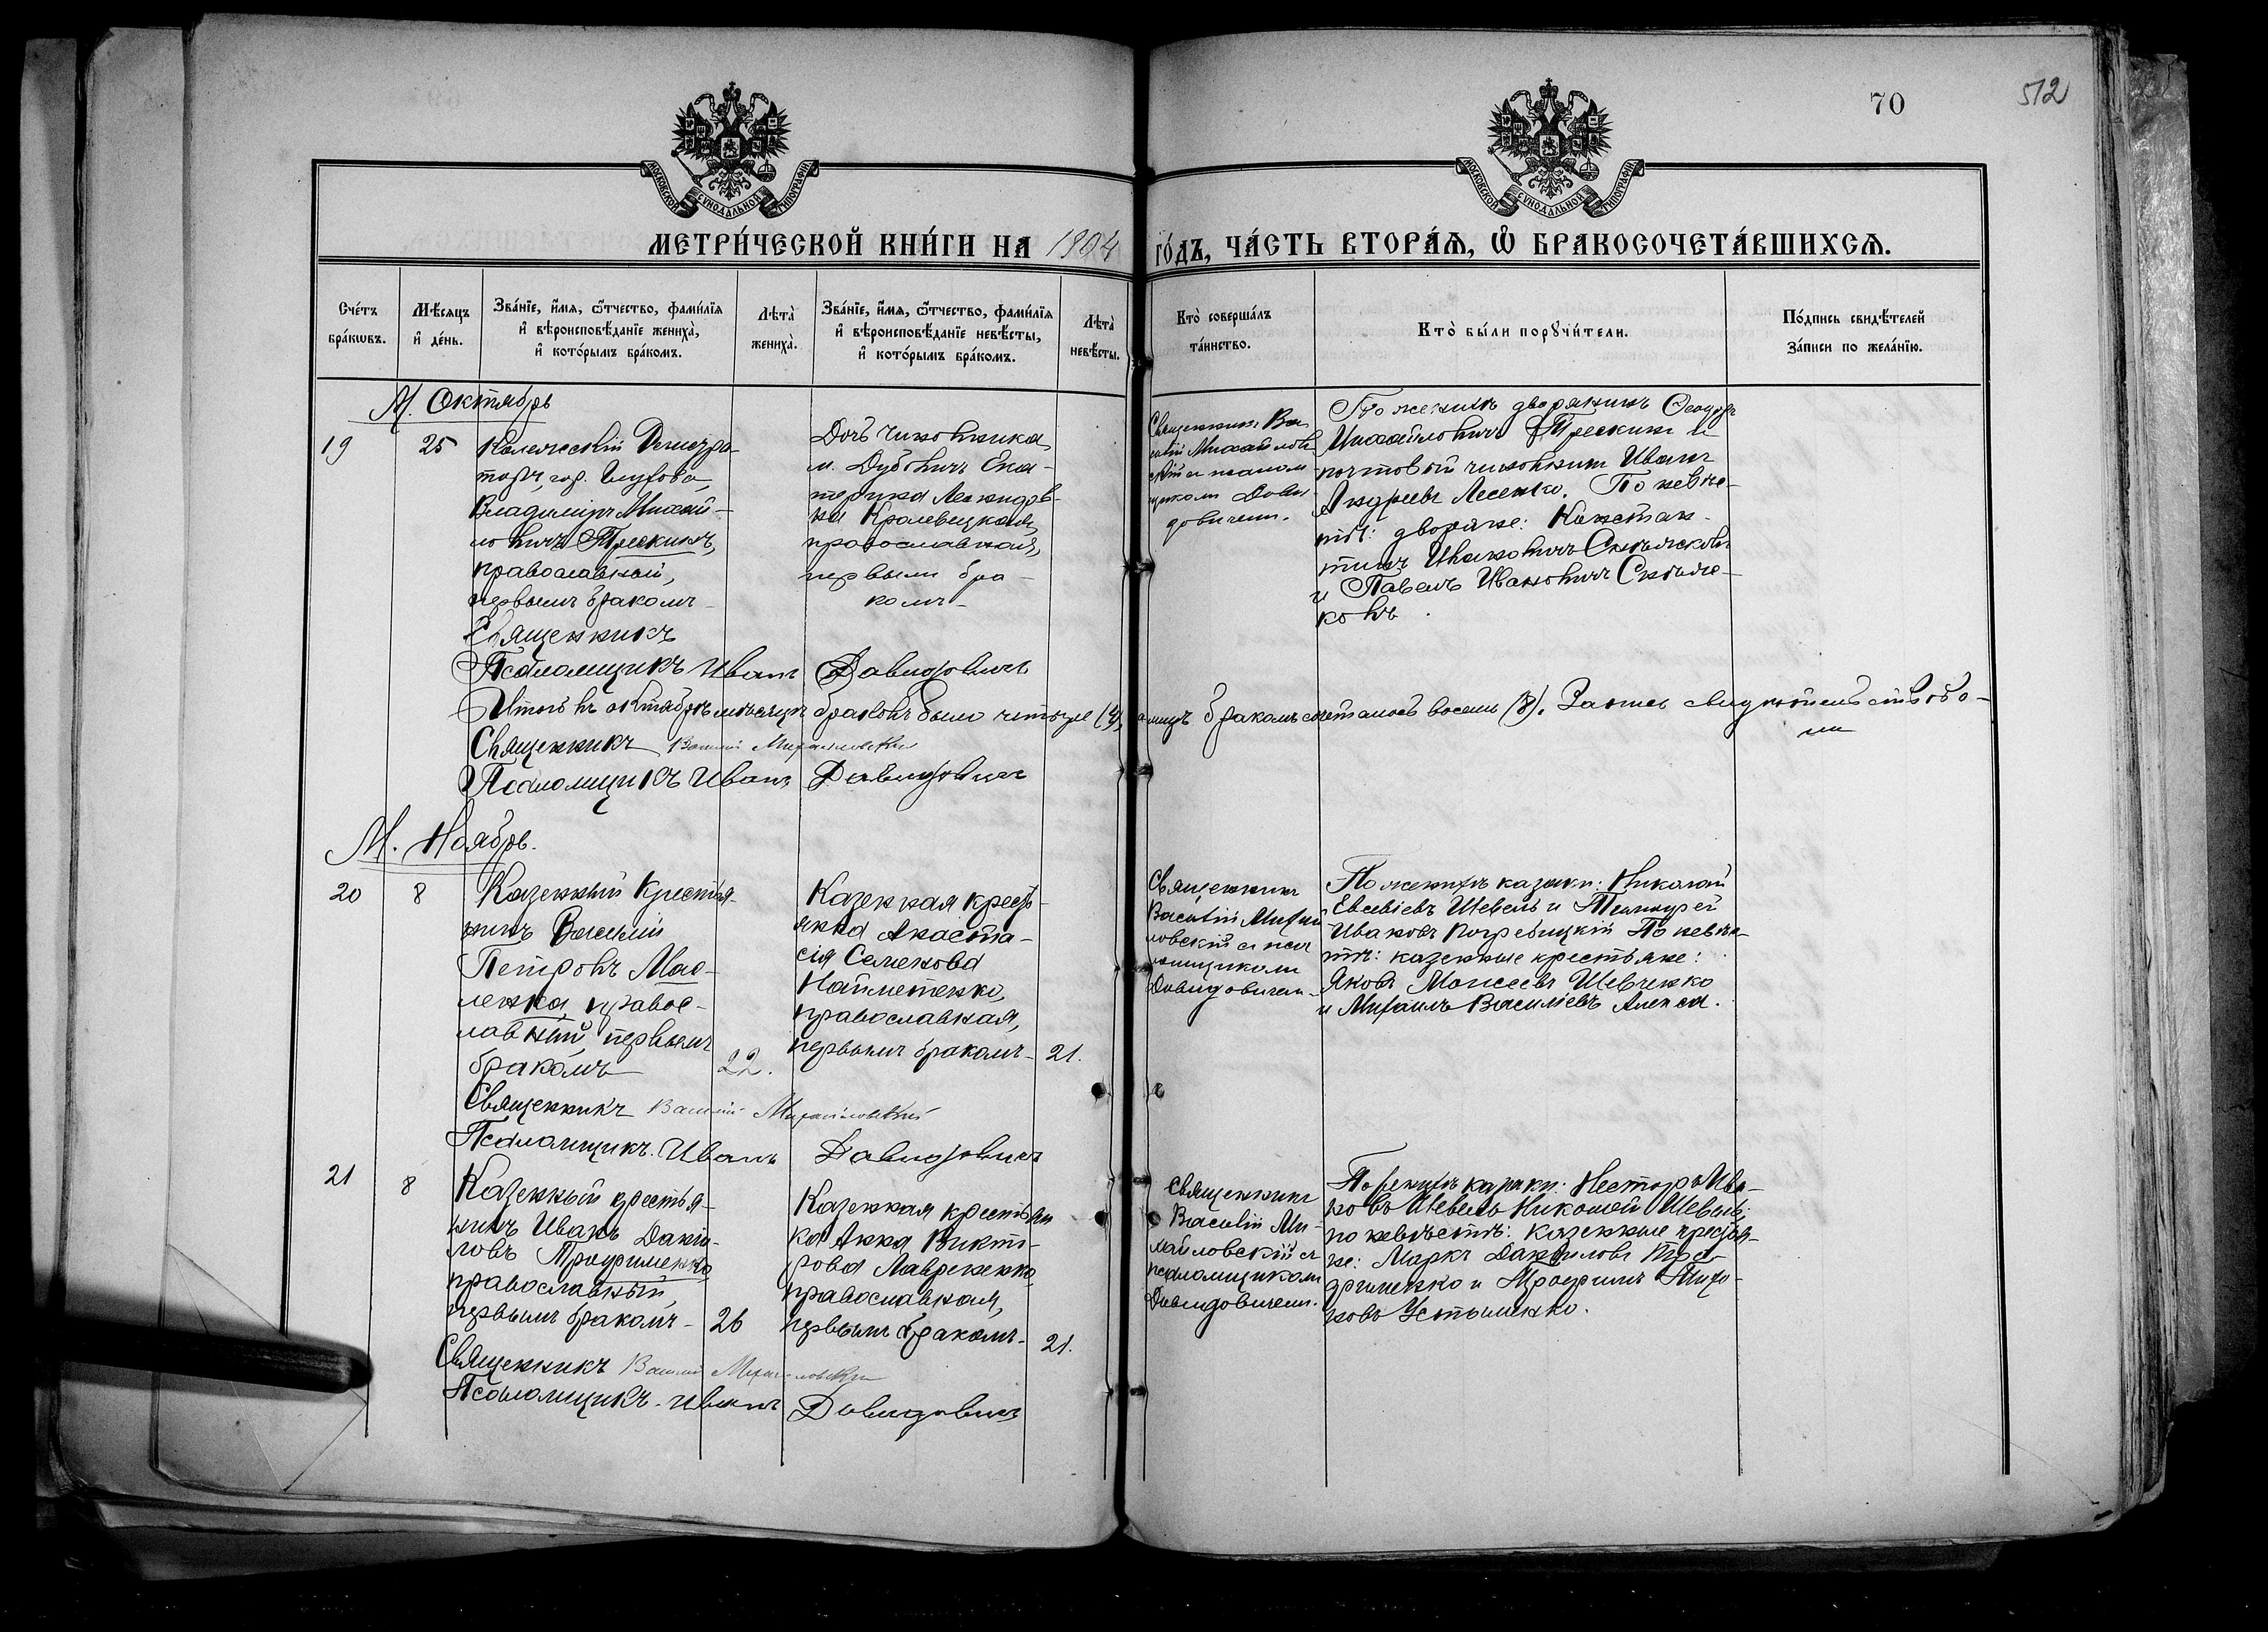 70
512
МОСКОВСКОЙ СУНОДАЛЬНОЙ ТИПОГРАФІИ
МОСКОВСКОЙ СУНОДАЛЬНОЙ ТИПОГРАФІИ
МЕТРИ́ЧЕСКОЙ КНИ́ГИ НА 1894 ГО́ДЪ, ЧА́СТЬ ВТОРА́Я, Ѡ҆ БРАКОСОЧЕТА́ВШИХСЯ.
Сче́тъ
бра́кѡвъ.
Мѣ́сяцъ
и҆ де́нь.
Зва́нїе, и҆́мя, ѻ҆́тчество, фами́лїя
и҆ вѣроисповѣ́данїе жениха̀,
и҆ кото́рымъ бра́комъ.
Лѣта̀
жениха̀.
Зва́нїе, и҆́мя, ѻ҆́тчество, фами́лїя
и҆ вѣроисповѣ́данїе невѣ́сты,
и҆ кото́рымъ бра́комъ.
Лѣта̀
невѣ́сты.
Кто̀ соверша́лъ
та́инство.
Кто̀ бы́ли порꙋчи́тели.
По́дпись свидѣ́телей
за́писи по жела́нїю.
М. Октябрь
19
25
Колежскій Регистра-
торъ, гор. Глухова,
Владиміръ Михай-
ловичъ Трескинъ,
православный,
первымъ бракомъ
Дочь чиновника
м. Дубовичъ Ека-
терина Леонидов-
на Кролевецкая,
православная,
первымъ бра-
комъ
Священникъ Ва-
силій Михайлов-
скій съ псалом-
щикомъ Дави-
довичем.
По женихѣ дворянинъ Ѳеодоръ
Михайловичъ Трескинъ и
почтовый чиновникъ Иванъ
Андреевъ Лесенко. По невѣс-
тѣ: дворяне: Констан-
тинъ Ивановичъ
и Павелъ Ивановичъ
Священникъ
Псаломщикъ Иванъ Давидовичъ
Итогъ въ октябрѣ мѣсяцѣ браковъ было четыре (4), а лицъ бракомъ сочеталось восемь (8). Запись свидѣтельствовы-
ли
Священникъ Василій Михайловскій
Псаломщикъ Иванъ Давидовичъ
М. Ноябрь.
20
8
Казенный крестья-
нинъ Василій
Петровъ Мас-
ленко, правос-
лавный, первымъ
бракомъ
22.
Казенная кресть-
янка Анаста-
сія Семенова
Найметенко,
православная,
первымъ бракомъ
21.
Священникъ
Василій Михай-
ловскій съ псал-
омщикомъ
Давидовичем
По женихѣ казаки: Николай
Евсевіевъ Шевель и Тимофей
Ивановъ Погребицкій По невѣс-
тѣ: казенные крестьяне:
Яковъ Моисеевъ Шевченко
и Михаилъ Василіевъ Алекса.
Священникъ Василій Михайловскій
Псаломщикъ. Иванъ Давидовичъ
21
8
Казенный крестья-
нинъ Иванъ Дані-
ловъ Трофименко
православный,
первымъ бракомъ
26
Казенная крестьян
ка Анна Викто-
рова Лавриненко
православная,
первымъ бракомъ
21.
Священникъ
Василій Ми-
хайловскій съ
псаломщикомъ
Давидовичем.
По женихѣ казаки: Несторъ Ива-
новъ Шевель Николай Шевель;
по невѣстѣ: казенные крестья-
не: Маркъ Даниловъ Тро-
фименко и Трофимъ Тихо-
новъ Устименко.
Священникъ Василій Михайловскій
Псаломщикъ. Иванъ Давидовичъ